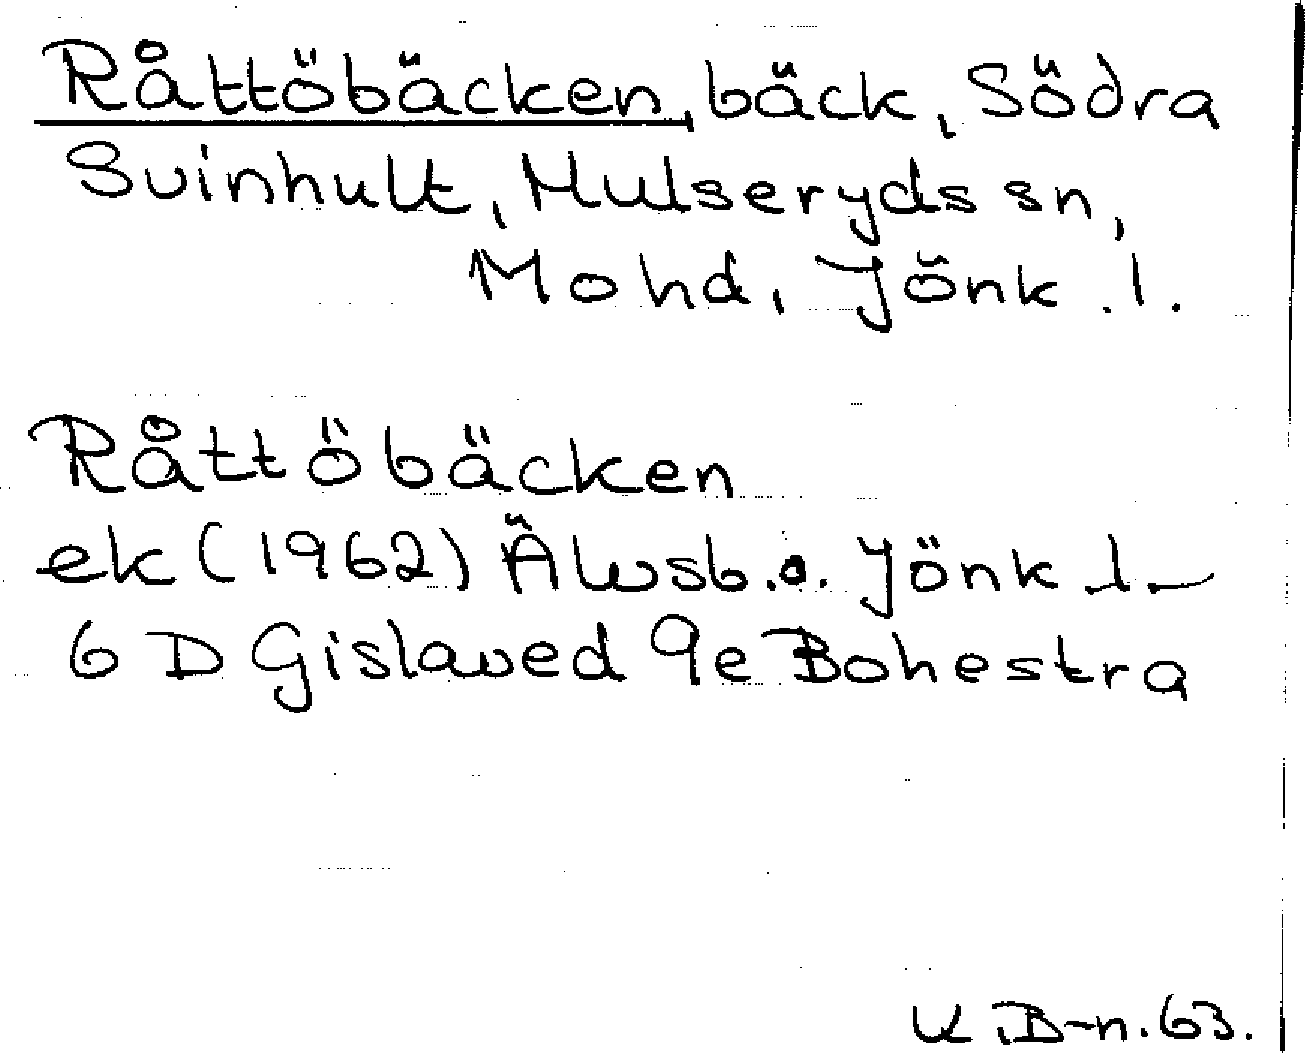 Råttöbäcken, bäck, Södra
Svinhult, Hulseryds sn,
Mohd, Jönk. l.
Råttöbäcken
ek (1962) Älvsb. o. Jönk l –
6 D Gislaved 9e Bohestra
K. B-n. 63.